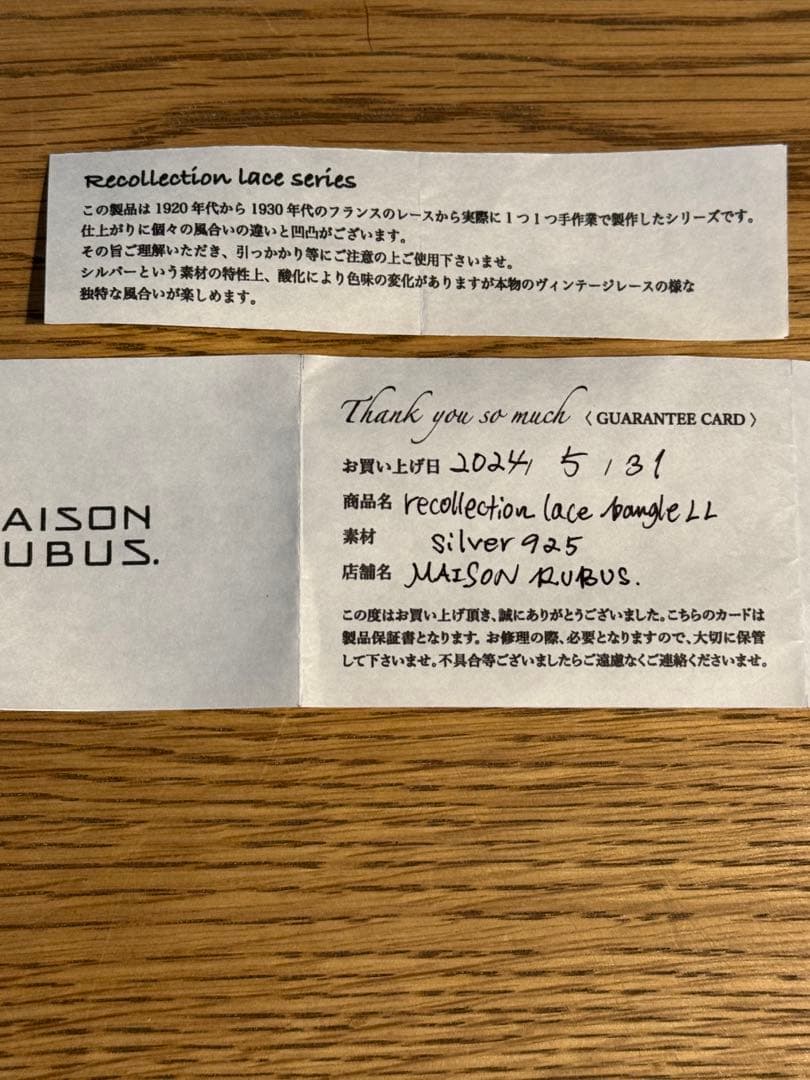 Recollection lace series
この製品は1920年代から1930年代のフランスのレースから実際に1つ1つ手作業で製作したシリーズです。
仕上がりに個々の風合いの違いと凹凸がございます。
その旨ご理解いただき、引っかかり等にご注意の上ご使用下さいませ。
シルバーという素材の特性上、酸化により色味の変化がありますが本物のヴィンテージレースの様な
独特な風合いが楽しめます。
AISON
UBUS.
Thank you so much 〈 GUARANTEE CARD 〉
お買い上げ日 2024, 5, 31
商品名 recollection lace bangle LL
素材 silver 925
店舗名 MAISON RUBUS.
この度はお買い上げ頂き、誠にありがとうございました。こちらのカードは
製品保証書となります。お修理の際、必要となりますので、大切に保管
して下さいませ。不具合等ございましたらご遠慮なくご連絡くださいませ。